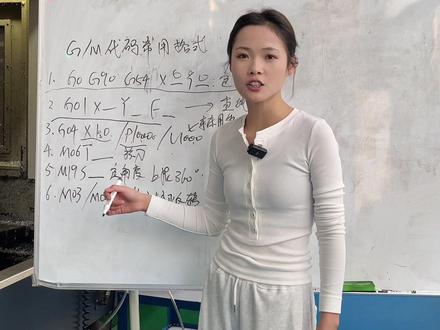 G/M代码常用格式
1. G0 G90 G54 X_Y_
2 G01 X_ Y_ F_ → 直线
3. G04 X1.0 / P1000 / U1000
4. M06 T_ 换刀
5 M19 S_ 定角度 360°
6. M03 / 反转